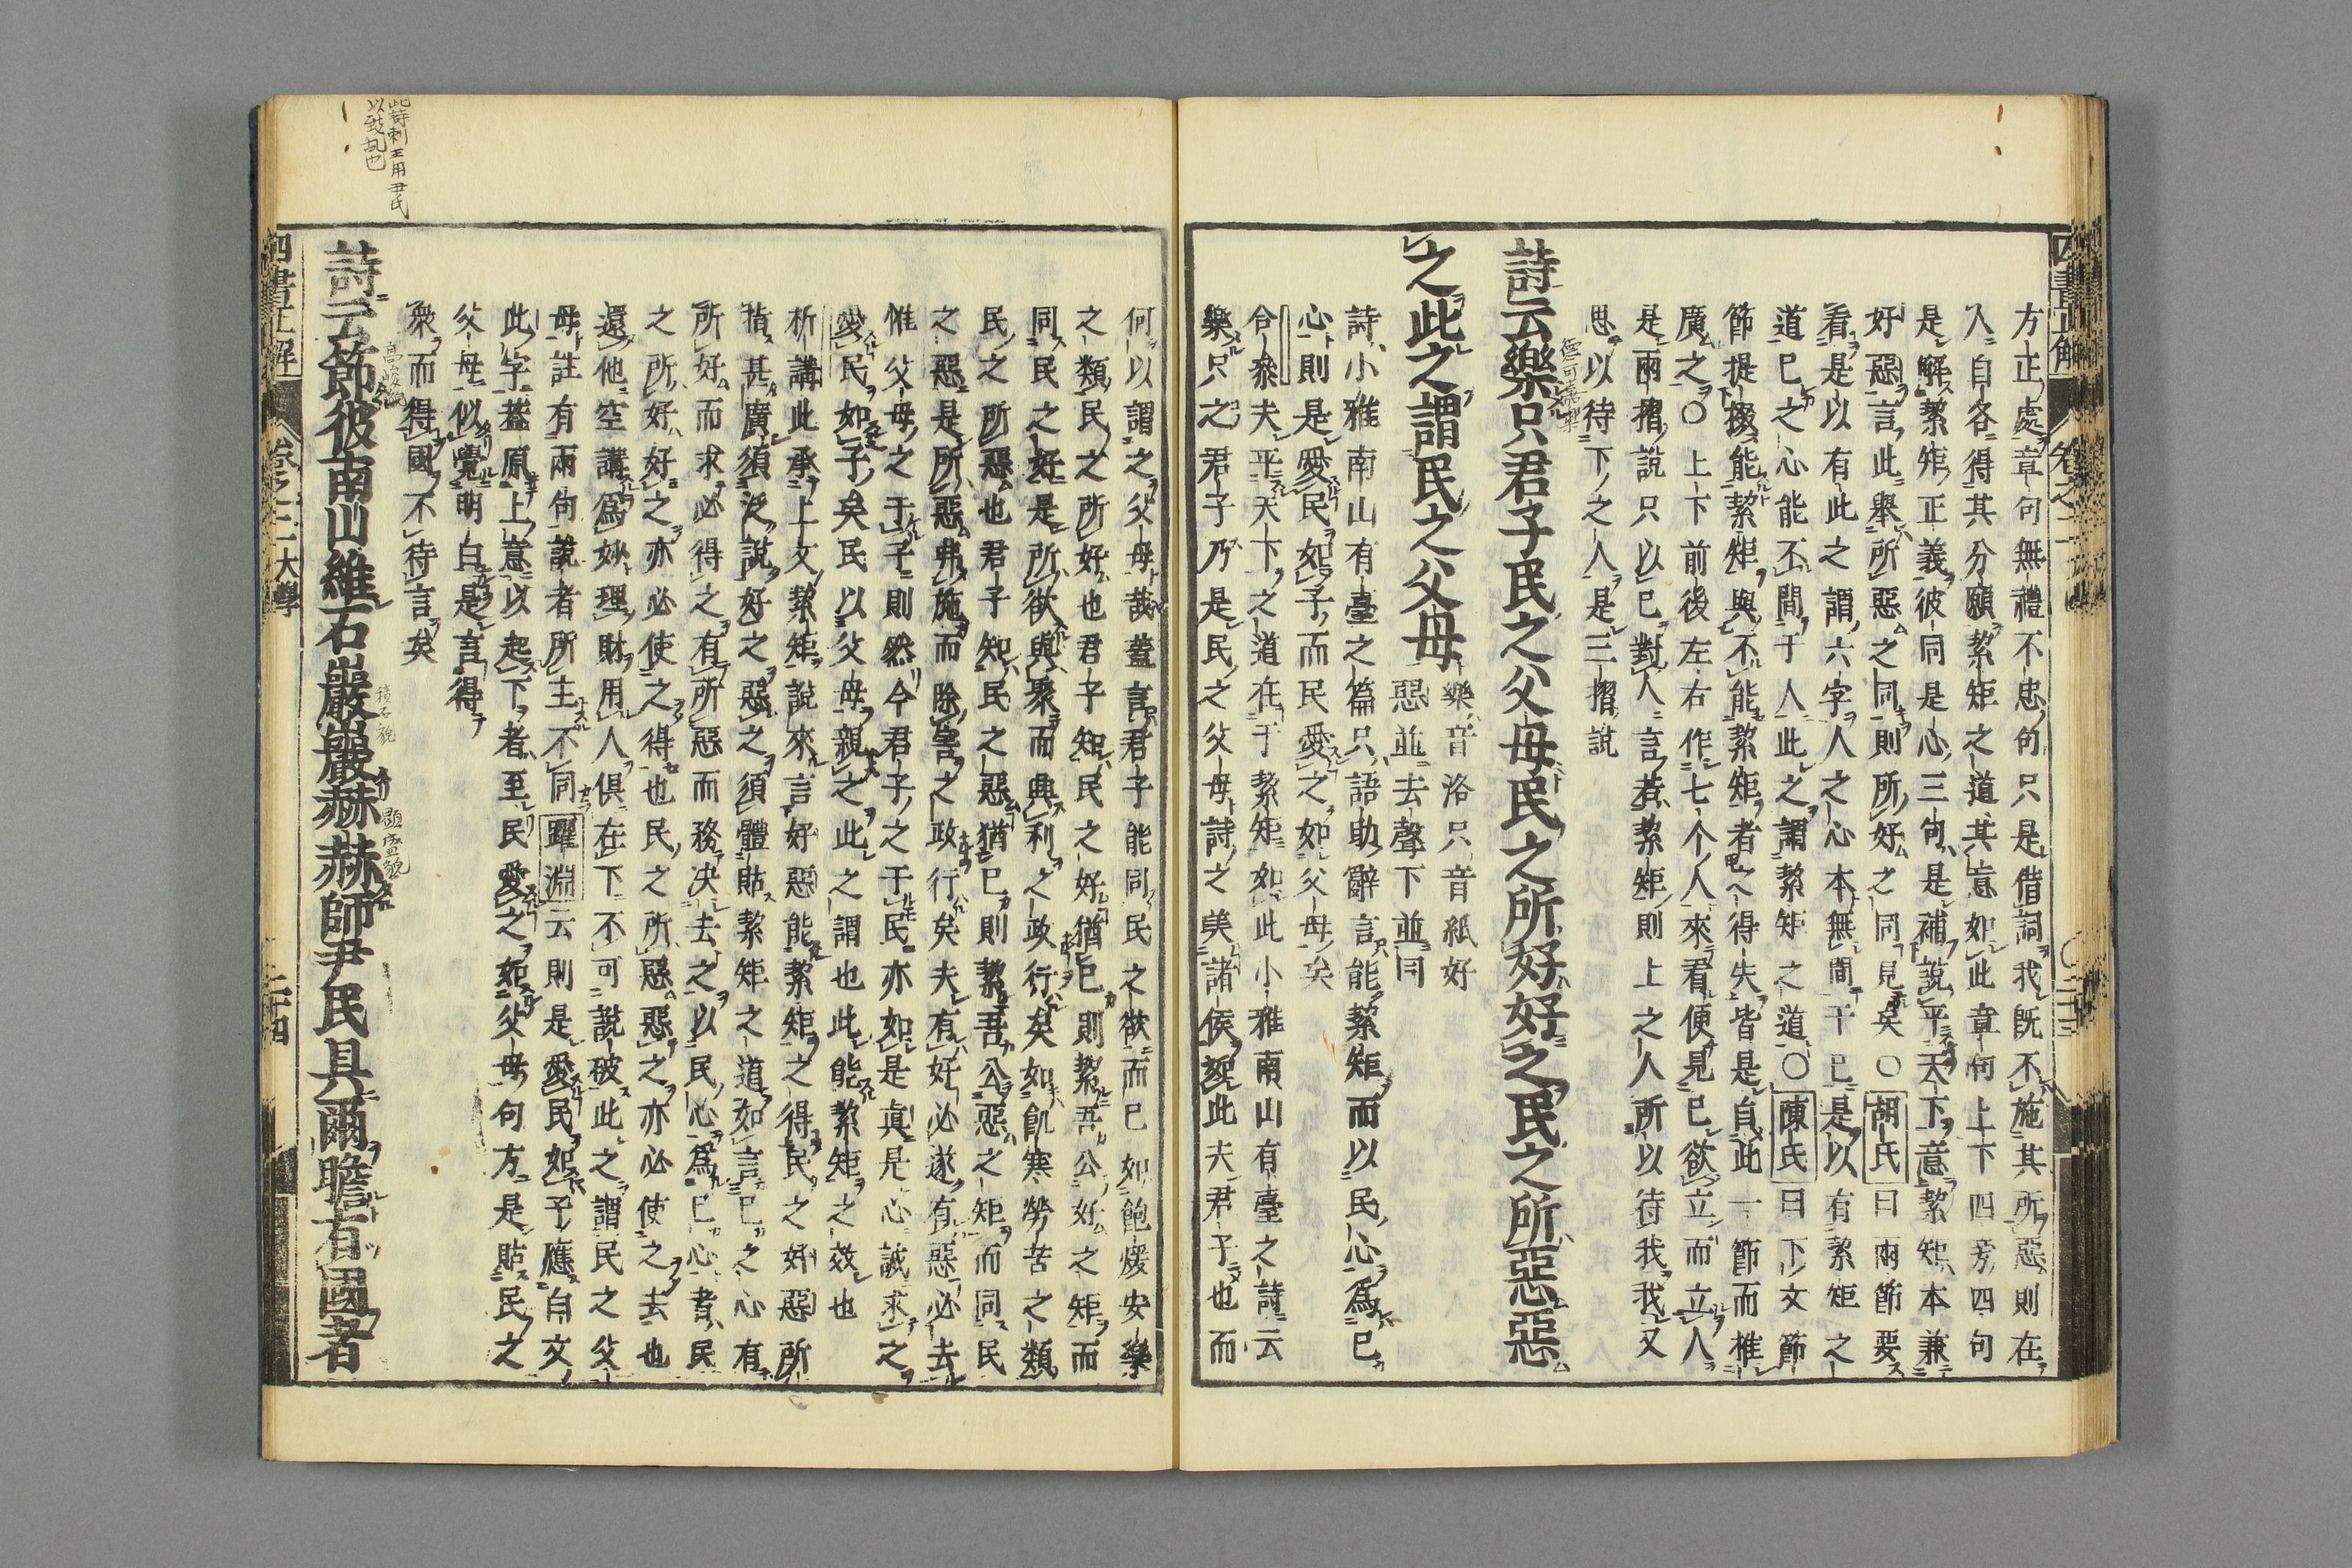 四書正解
卷之二
二十三
方正處章句無禮不忠句只是借詞我既不施其所惡則在
人自各得其分願絜矩之道其意如此章句上下四旁四句
是解絜矩正義彼同是心三句是補說平天下意絜矩本兼
好惡言此舉所惡之同則所好之同見矣○胡氏曰兩節要
看是以有此之謂六字人之心本無間于己是以有絜矩之
道己之心能不間于人此之謂絜矩之道○陳氏曰下文節
節提掇能絜矩與不能絜矩者之得失皆是自此一節而推
廣之○上下前後左右作七个人來看便見己欲立而立人
是兩摺說只以己對人言若絜矩則上之人所以待我我又
思以待下之人是三摺說
詩云樂只君子民之父母民之所好好之民之所惡惡
之此之謂民之父母
樂音洛只音紙好
惡並去聲下並同
詩小雅南山有臺之篇只語助辭言能絜矩而以民心為己
心則是愛民如子而民愛之如父母矣
合參夫平天下之道在于絜矩如此小雅南山有臺之詩云
樂只之君子乃是民之父母詩之美諸侯觀此夫君子也而
何以謂之父母哉蓋言君子能同民之欲而已如飽煖安樂
之類民之所好也君子知民之好猶己則絜吾公好之矩而
同民之好是所欲與眾而興利之政行矣如飢寒勞苦之類
民之所惡也君子知民之惡猶己則絜吾公惡之矩而同民
之惡是所惡弗施而除害之政行矣夫有好必遂有惡必去
惟父母之于子則然今君子之于民亦如是真是心誠求之
愛民如子矣民以父母親之此之謂也此能絜矩之效也
析講此承上文絜矩說來言好惡能絜矩之得民之好惡所
指甚廣須泛說好之惡之須體貼絜矩之道如言己之心有
所好而求必得之有所惡而務決去之以民心為己心者民
之所好好之亦必使之得也民之所惡惡之亦必使之去也
還他空講為妙理財用人俱在下不可說破此之謂民之父
母註有兩句說者所主不同躍淵云則是愛民如子應自文
此字蓋原上意以起下者至民愛之如父母句方是貼民之
父母似覺明白是言得
眾而得國不待言矣
詩云節彼南山維石巖巖赫赫師尹民具爾瞻有國者
高峻貌
積石貌
顯盛貌
此詩刺王用尹氏
以致乱也
四書正解
卷之二 大學
二十四